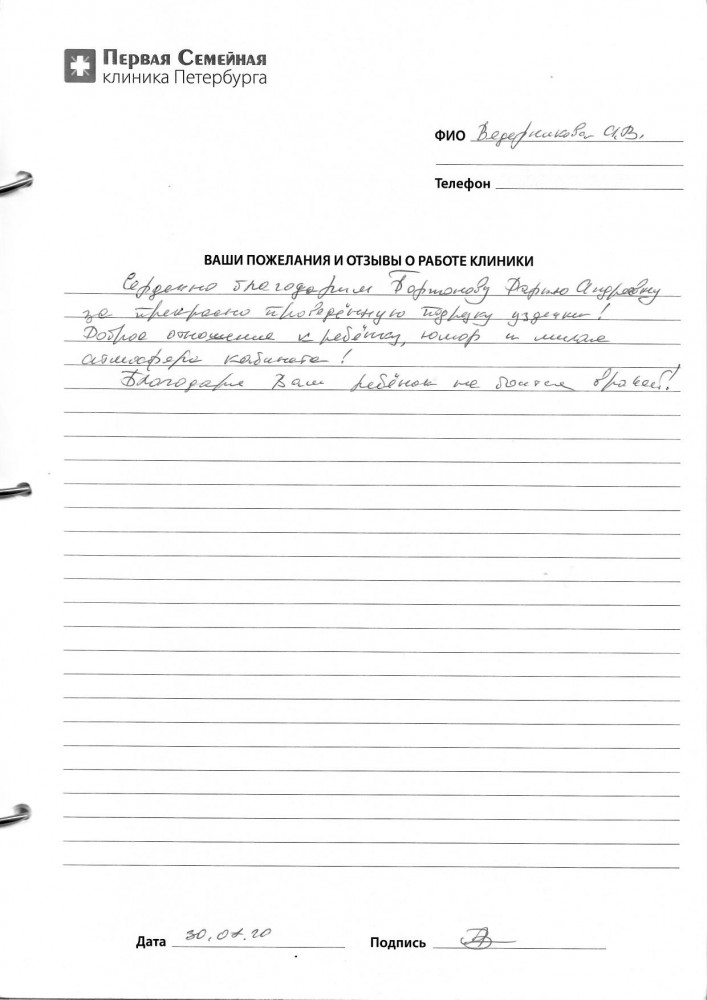 Первая Семейная
клиника Петербурга
ФИО Ведерникова А.В.
Телефон
ВАШИ ПОЖЕЛАНИЯ И ОТЗЫВЫ О РАБОТЕ КЛИНИКИ
Сердечно благодарим Дарью Андреевну
за прекрасно проведённую уздечки!
Доброе отношение к ребёнку, юмор и милая
атмосфера кабинета!
Благодаря Вам ребёнок не боится врачей!
Дата 30.07.20
Подпись